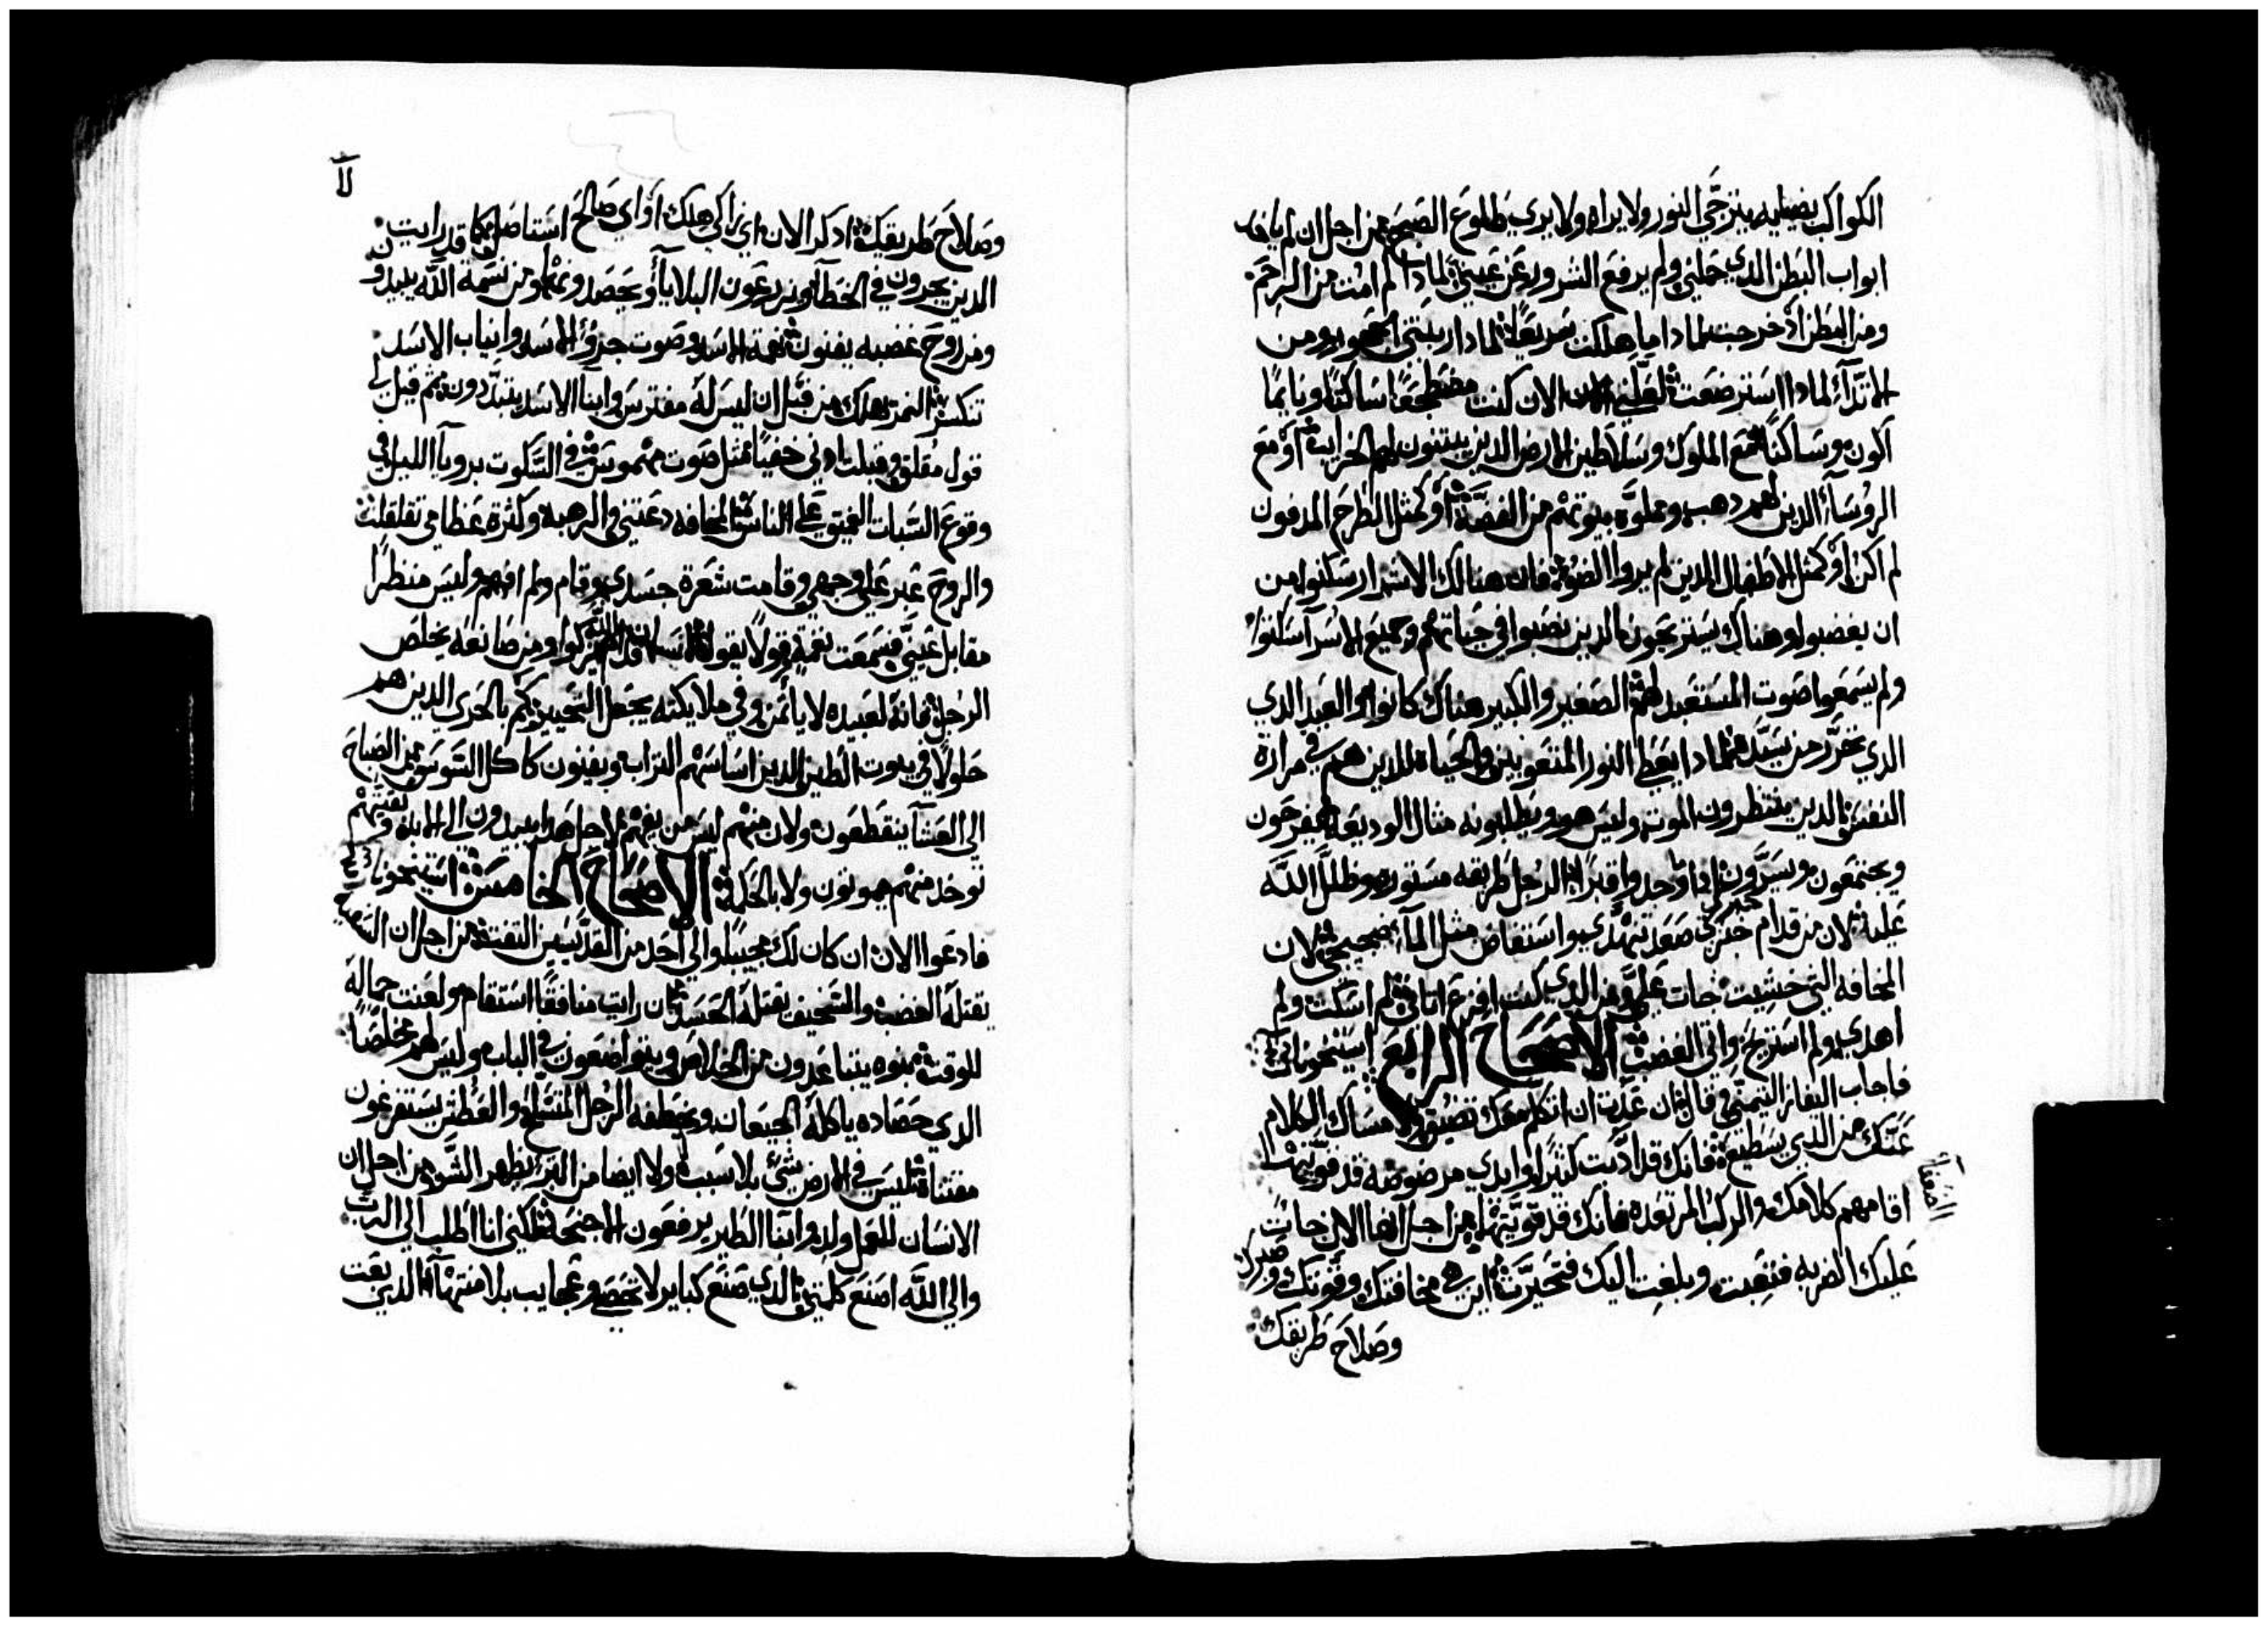 الكواكب بضبابه يترجي النور ولا يراه ولا يري طلوع الصبح من اجل ان لم يافد
ابواب البطن الدي حملني ولم يرفع الشرور عن عيني لمادا لم امت من الرحم
ومن البطن اد خرجت لمادا ما هلكت سريعا لمادا ربتني الحجور ومن
الاتداء لمادا استرضعت لعلني الان كنت مضطجعا ساكتا ونايما
اكون وساكنا مع الملوك وسلاطين الارض الدين يبتنون لهم الخرايب او مع
الروسآء الدين لهم دهب ومملوه بيوتهم من الفضة او كمثل الطرح المدفون
لم اكن او كمثل الاطفال الدين لم يروا الضوء فان هنالك الاشرار سكنوا من
ان يغضبوا وهناك يستريحون الدين نصبوا في حياتهم وجميع الاسرآ سكنوا
ولم يسمعوا صوت المستعبد لهم الصغير والكبير هناك كانوا والعبد الدي
الدي تحرر من سيده لمادا يعطا النور المتعوبين والحياة للدين هم في مرارة
النفس الدين ينتظرون الموت وليس هو ويطلبونه مثال الوديعة يفرحون
ويجتمعون ويسرون ادا وجدوا قبرا الرجل طريقه مستوره وظلل الله
عليه لان من قدام خبزي صعد تنهدي واستفاض مثل المآء ضجيجي لان
المخافه التي خشيت جات علي ومن الدي كنت افزع اتاني لم اسكت ولم
اهدي ولم استريح واتي الغضب الاصحاح الرابع استيحونا في
فاجاب اليفاز التيمني وقال ان عدت ان اتكلم معك تضيق ولامساك الكلام
عنك من الدي يستطيعه فانك قد ادبت كثيرا وايدي مرضوضه قد قويتها
الضعفا
اقامهم كلامك والركب المرتعده فانك قد قويتها من اجل انها الان جات
عليك الضربه فتعبت وبلغت اليك فتحيرت اين هي مخافتك وقوتك وصبرك
وصلاح طريقك
لا
وصلاح طريقك ادكر الان اي زاكي هلك او اي صالح استاصل كما قد رايت
الدين يحرون في الخطآ ويزرعون البلايآ ويحصدونها ومن نسمة الله يبيدون
ومن روح غضبه يفنون نغمة الاسد وصوت جرو الاسد وانياب الاسد
تنكسر النمر هلك من قبل ان ليس له مفترس وابنا الاسد يتبددون ثم قيل لي
قول مقلق وقبلت ادني خفيا مثل صوت مهموته في السكوت برويآ الليل في
وقوع السبات العميق علي الناس المخافه دعتني والرهبه وكثرة عظامي تقلقلت
والروح عبر علي وجهي وقامت شعرة جسدي وقام ولم افهم وليس منظرا
مقابل عيني فسمعت نغمة وقولا يقول الانسان قدام الله يزكوا ومن صانعه يخلص
الرجل فانه لعبيده لا يأتمن وفي ملايكته يجعل التحيير كم بالحري الدين هم
حلولا في بيوت الطين الدين اساسهم التراب ويفنون كاكل السوس من الصباح
الي العشآ ينقطعون ولان منهم ليس من يفهم لاجل هدا يبيدون الي الابد وبقيتهم
توخد منهم يموتون ولا بالحكمة الاصحاح الخامس استيحونا
فادعوا الان ان كان لك مجيبا والي احد من القديسين التفت من اجل ان السفيه
يقتله الغضب والسخيف يقتله الحسد ان رايت منافقا استقام ولعنت جماله
للوقت بنوه يتباعدون من الخلاص ويتواضعون في الباب وليس لهم مخلصا
الدي حصاده ياكله الجيعان ويخطفه الرجل المتسلح والعطش يستفرغون
مقتناه ليس في الارض شي بلا سبب ولا ايضا من البر يظهر السو من اجل ان
الانسان للعمل ولد وابنا الطير يرفعون الاجنحه لكني انا اطلب الي الرب
والي الله اصنع كلمتي الدي صنع كباير لا تحصي وعجايب بلا منتهآ الدي